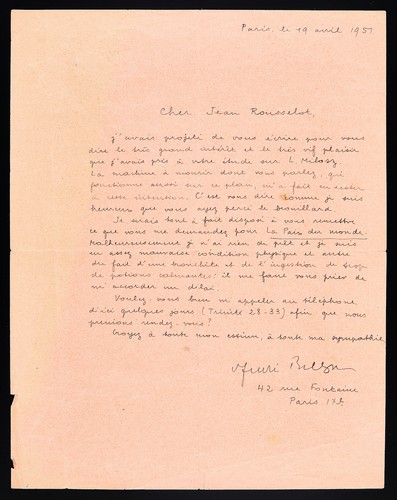 Paris, le 19 avril 1951
Cher Jean Rousselot,
j'avais projeté de vous écrire pour vous
dire le très grand intérêt et le très vif plaisir
que j'avais pris à votre étude sur L. Milosz
La machine à mourir dont vous parlez, qui
fonctionne aussi sur ce plan, m'a fait
à cette intention. C'est vous dire comme je suis
heureux que vous ayez percé le brouillard.
Je serais tout à fait disposé à vous remettre
ce que vous me demandez pour La Paix du monde.
Malheureusement je n'ai rien de prêt et je suis
en assez mauvaise condition physique et autre
du fait d'une et de l'ingestion de trop
de potions calmantes! il me faut vous prier de
m'accorder un délai.
Voulez-vous bien m'appeler au téléphone
d'ici quelques jours (Trinité 28-33) afin que nous
prenions rendez-vous?
Croyez à toute mon estime, à toute ma sympathie
Henri
42 rue Fontaine
Paris